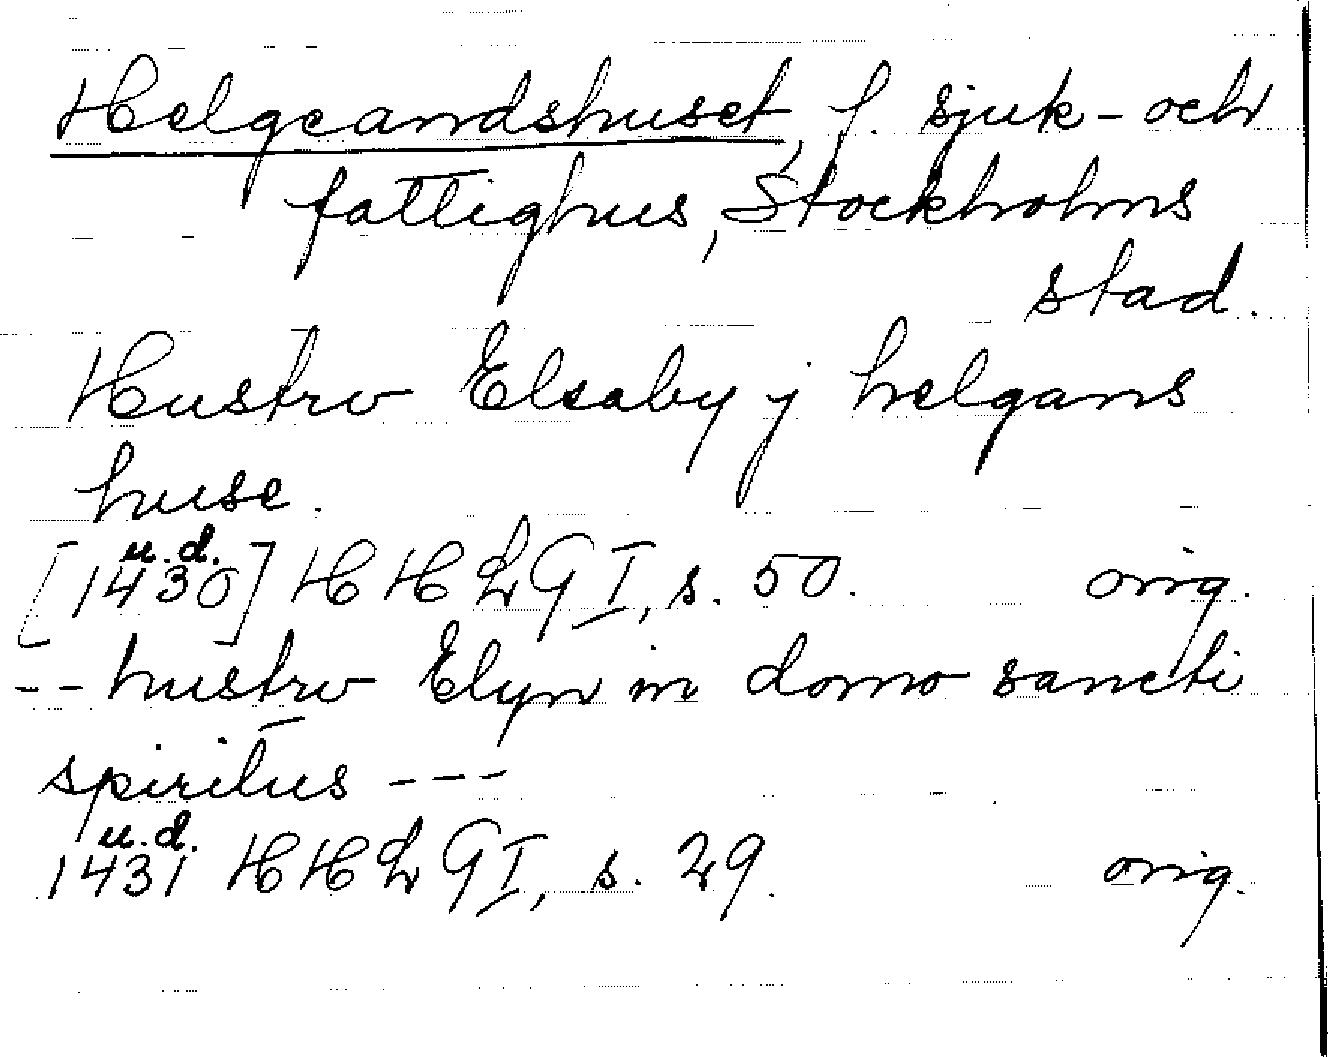 Helgeandshuset, f. sjuk- och
fattighus, Stockholms
stad.
Hustrv Elsaby j helgans
huse.
u.d.
[1430] HHLG I, s. 50. orig.
-- hustrv Elyn in domo sancti
spiritus ---
u.d.
1431 HHLG I, s. 29. orig.